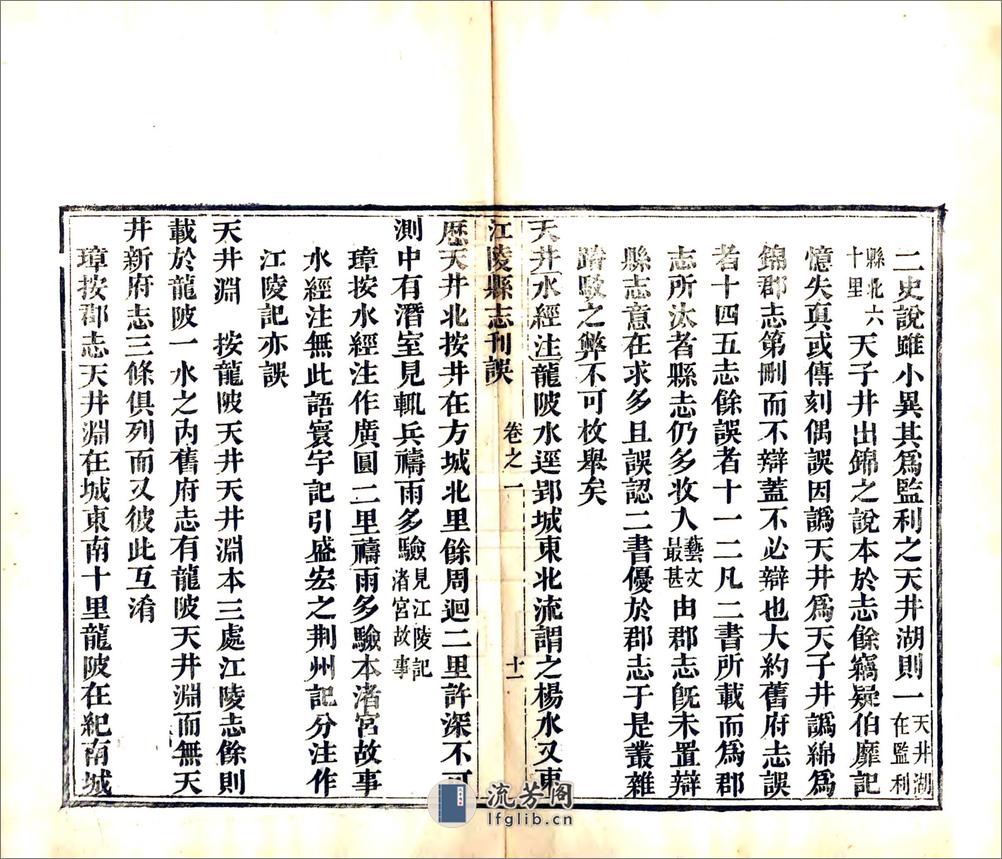 二史說雖小異其爲監利之天井湖則一天井湖在監利
縣北六十里天子井出錦之說本於志餘竊疑伯靡記
憶失真或傳刻偶誤因譌天井爲天子井譌綿爲
錦郡志第刪而不辯蓋不必辯也大約舊府志誤
者十四五志餘誤者十一二凡二書所載而爲郡
志所汰者縣志仍多收入藝文最甚由郡志旣未置辯
縣志意在求多且誤認二書優於郡志于是叢雜
踳駮之弊不可枚舉矣
天井水經注龍陂水逕郢城東北流謂之楊水又東
江陵縣志刊誤 卷之一 十一
歷天井北按井在方城北里餘周迴二里許深不可
測中有潛室見輒兵禱雨多驗見江陵記渚宮故事
璋按水經注作廣圓二里禱雨多驗本渚宮故事
水經注無此語寰宇記引盛宏之荆州記分注作
江陵記亦誤
天井淵 按龍陂天井天井淵本三處江陵志餘則
載於龍陂一水之內舊府志有龍陂天井淵而無天
井新府志三條俱列而又彼此互淆
璋按郡志天井淵在城東南十里龍陂在紀南城
流芳阁
lfglib.cn